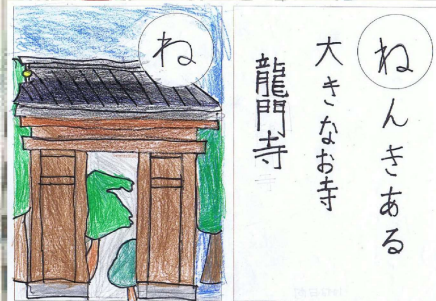 ね
ねんきある
大きなお寺
龍門寺